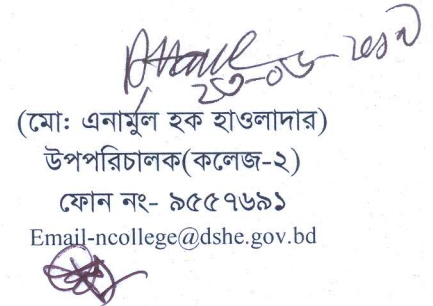 ২৩-০৮-২০১৭
(মো: এনামুল হক হাওলাদার)
উপপরিচালক(কলেজ-২)
ফোন নং- ৯৫৫৭৬৯১
Email-ncollege@dshe.gov.bd